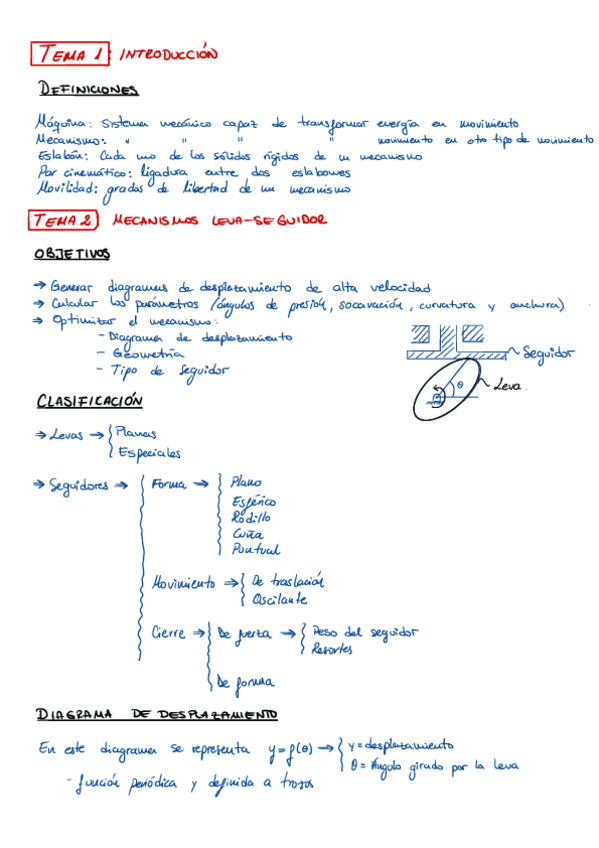 TEMA 1: INTRODUCCIÓN
DEFINICIONES
Máquina: Sistema mecánico capaz de transformar energía en movimiento
Mecanismo: " " " " movimiento en otro tipo de movimiento
Eslabón: Cada uno de los sólidos rígidos de un mecanismo
Par cinemático: ligadura entre dos eslabones
Movilidad: grados de libertad de un mecanismo
TEMA 2 MECANISMOS LEVA-SEGUIDOR
OBJETIVOS
→ Generar diagramas de desplazamiento de alta velocidad
→ Calcular los parámetros (ángulos de presión, socavación, curvatura y anchura)
→ Optimizar el mecanismo:
- Diagrama de desplazamiento
- Geometría
- Tipo de seguidor
Seguidor
θ
Leva
CLASIFICACIÓN
→ Levas → { Planas
Especiales
→ Seguidores → { Forma → { Plano
Esférico
Rodillo
Cuña
Puntual
Movimiento → { De traslación
Oscilante
Cierre → { De fuerza → { Peso del seguidor
Resortes
De forma
DIAGRAMA DE DESPLAZAMIENTO
En este diagrama se representa y=f(θ) → { y = desplazamiento
θ = Ángulo girado por la leva
- función periódica y definida a trozos